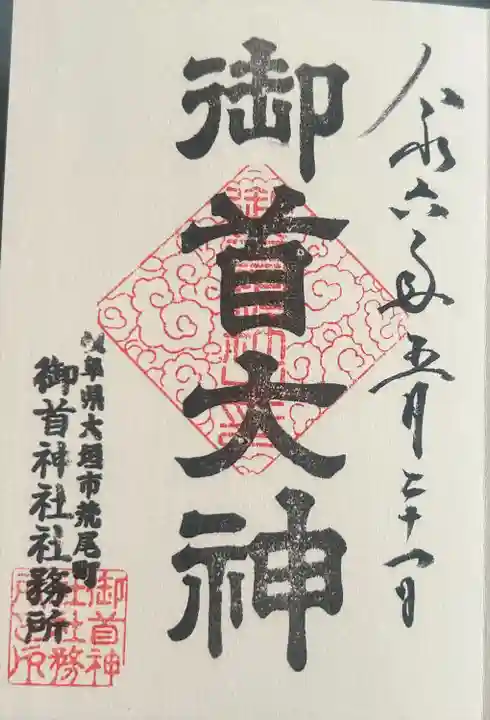 令和六年五月二十一日
御首大神
岐阜県大垣市荒尾町
御首神社社務所